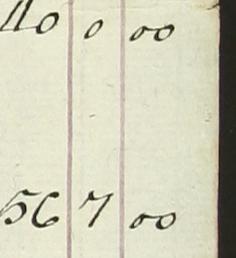 40 0 00
56 7 00